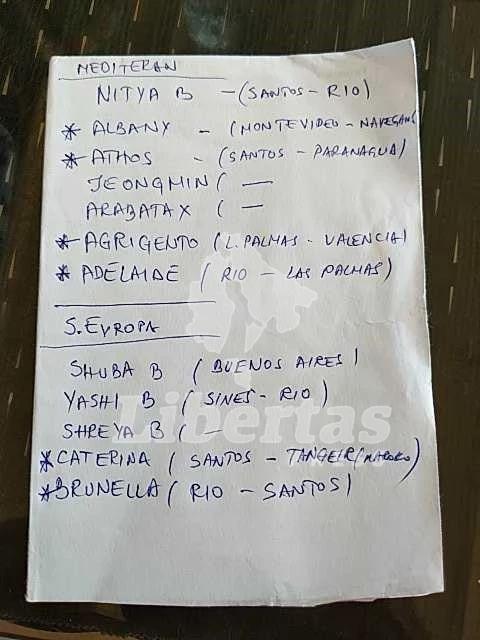 MEDITERAN
NITYA B - (SANTOS - RIO)
* ALBANY - (MONTEVIDEO - NAVEGANS
* ATHOS - (SANTOS - PARANAGUA)
JEONGMIN ( —
ARABATAX ( —
* AGRIGENTO (L. PALMAS - VALENCIA)
* ADELAIDE ( RIO - LAS PALMAS)
S. EVROPA
SHUBA B ( BUENOS AIRES)
YASHI B ( SINES - RIO )
SHREYA B ( —
Libertas
* CATERINA ( SANTOS - TANGEIR (MAROKO)
* BRUNELLA ( RIO - SANTOS)